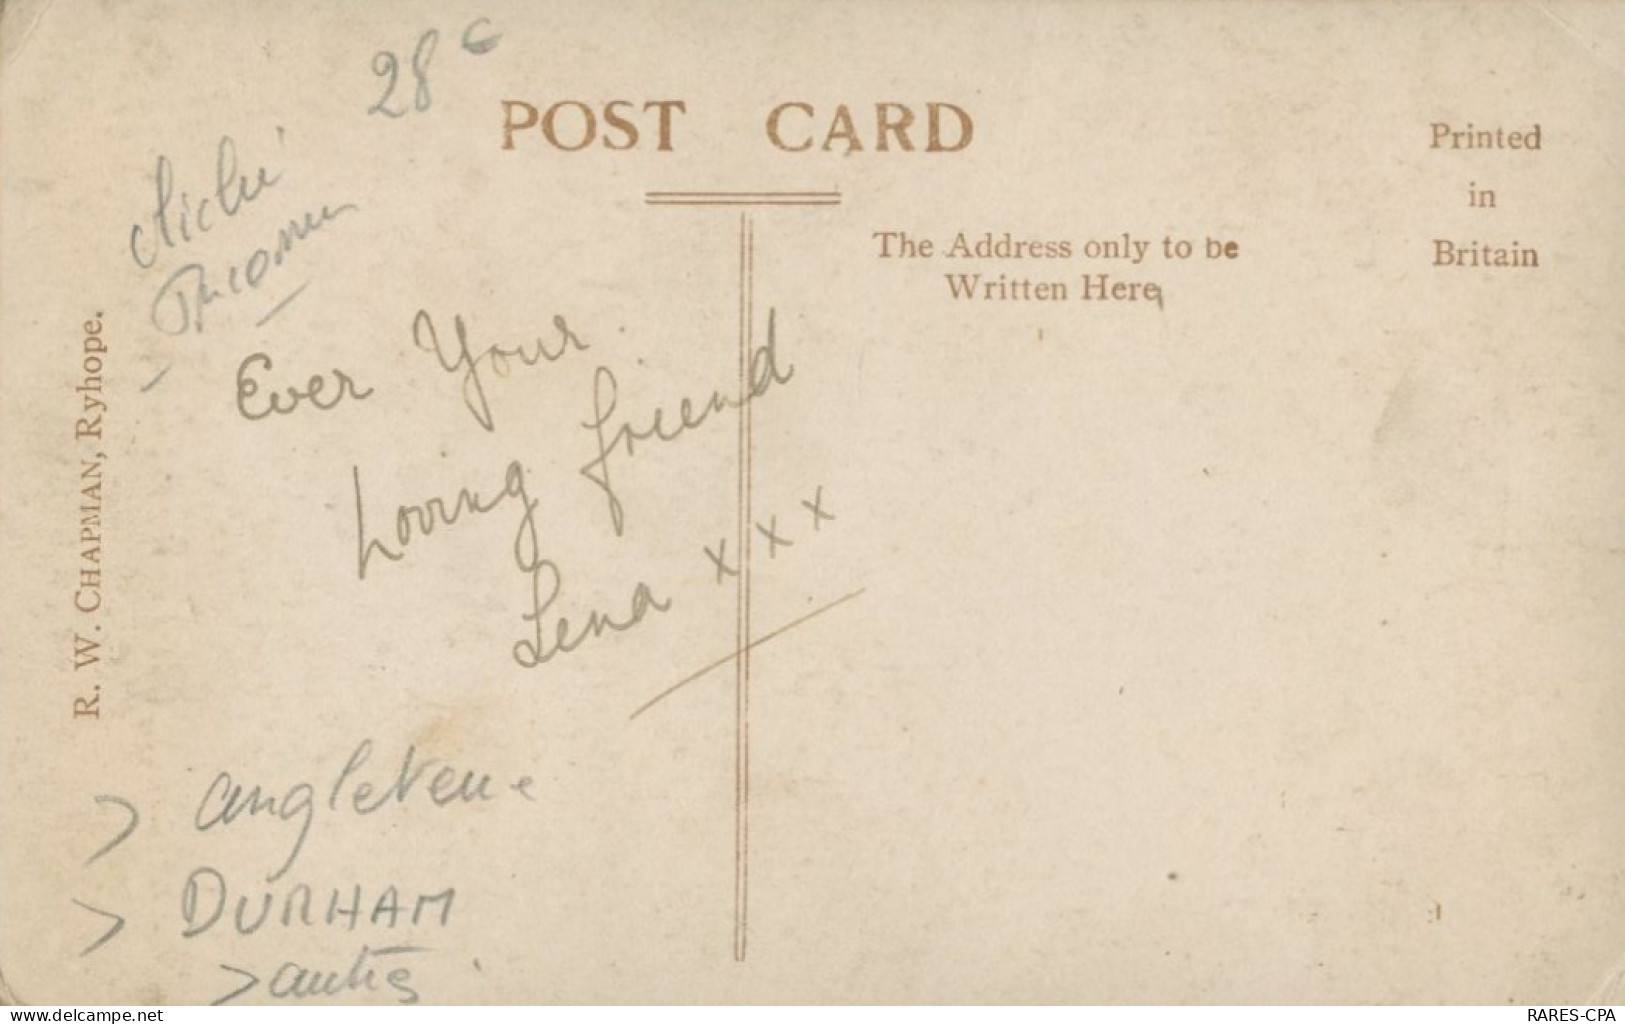 28 €
POST CARD
Printed
in
Britain
The Address only to be
Written Here
cliché
R. W. CHAPMAN, Ryhope.
Ever Your
Loving friend
Lena x x x
> angleterre
> DURHAM
> autres
www.delcampe.net
RARES-CPA